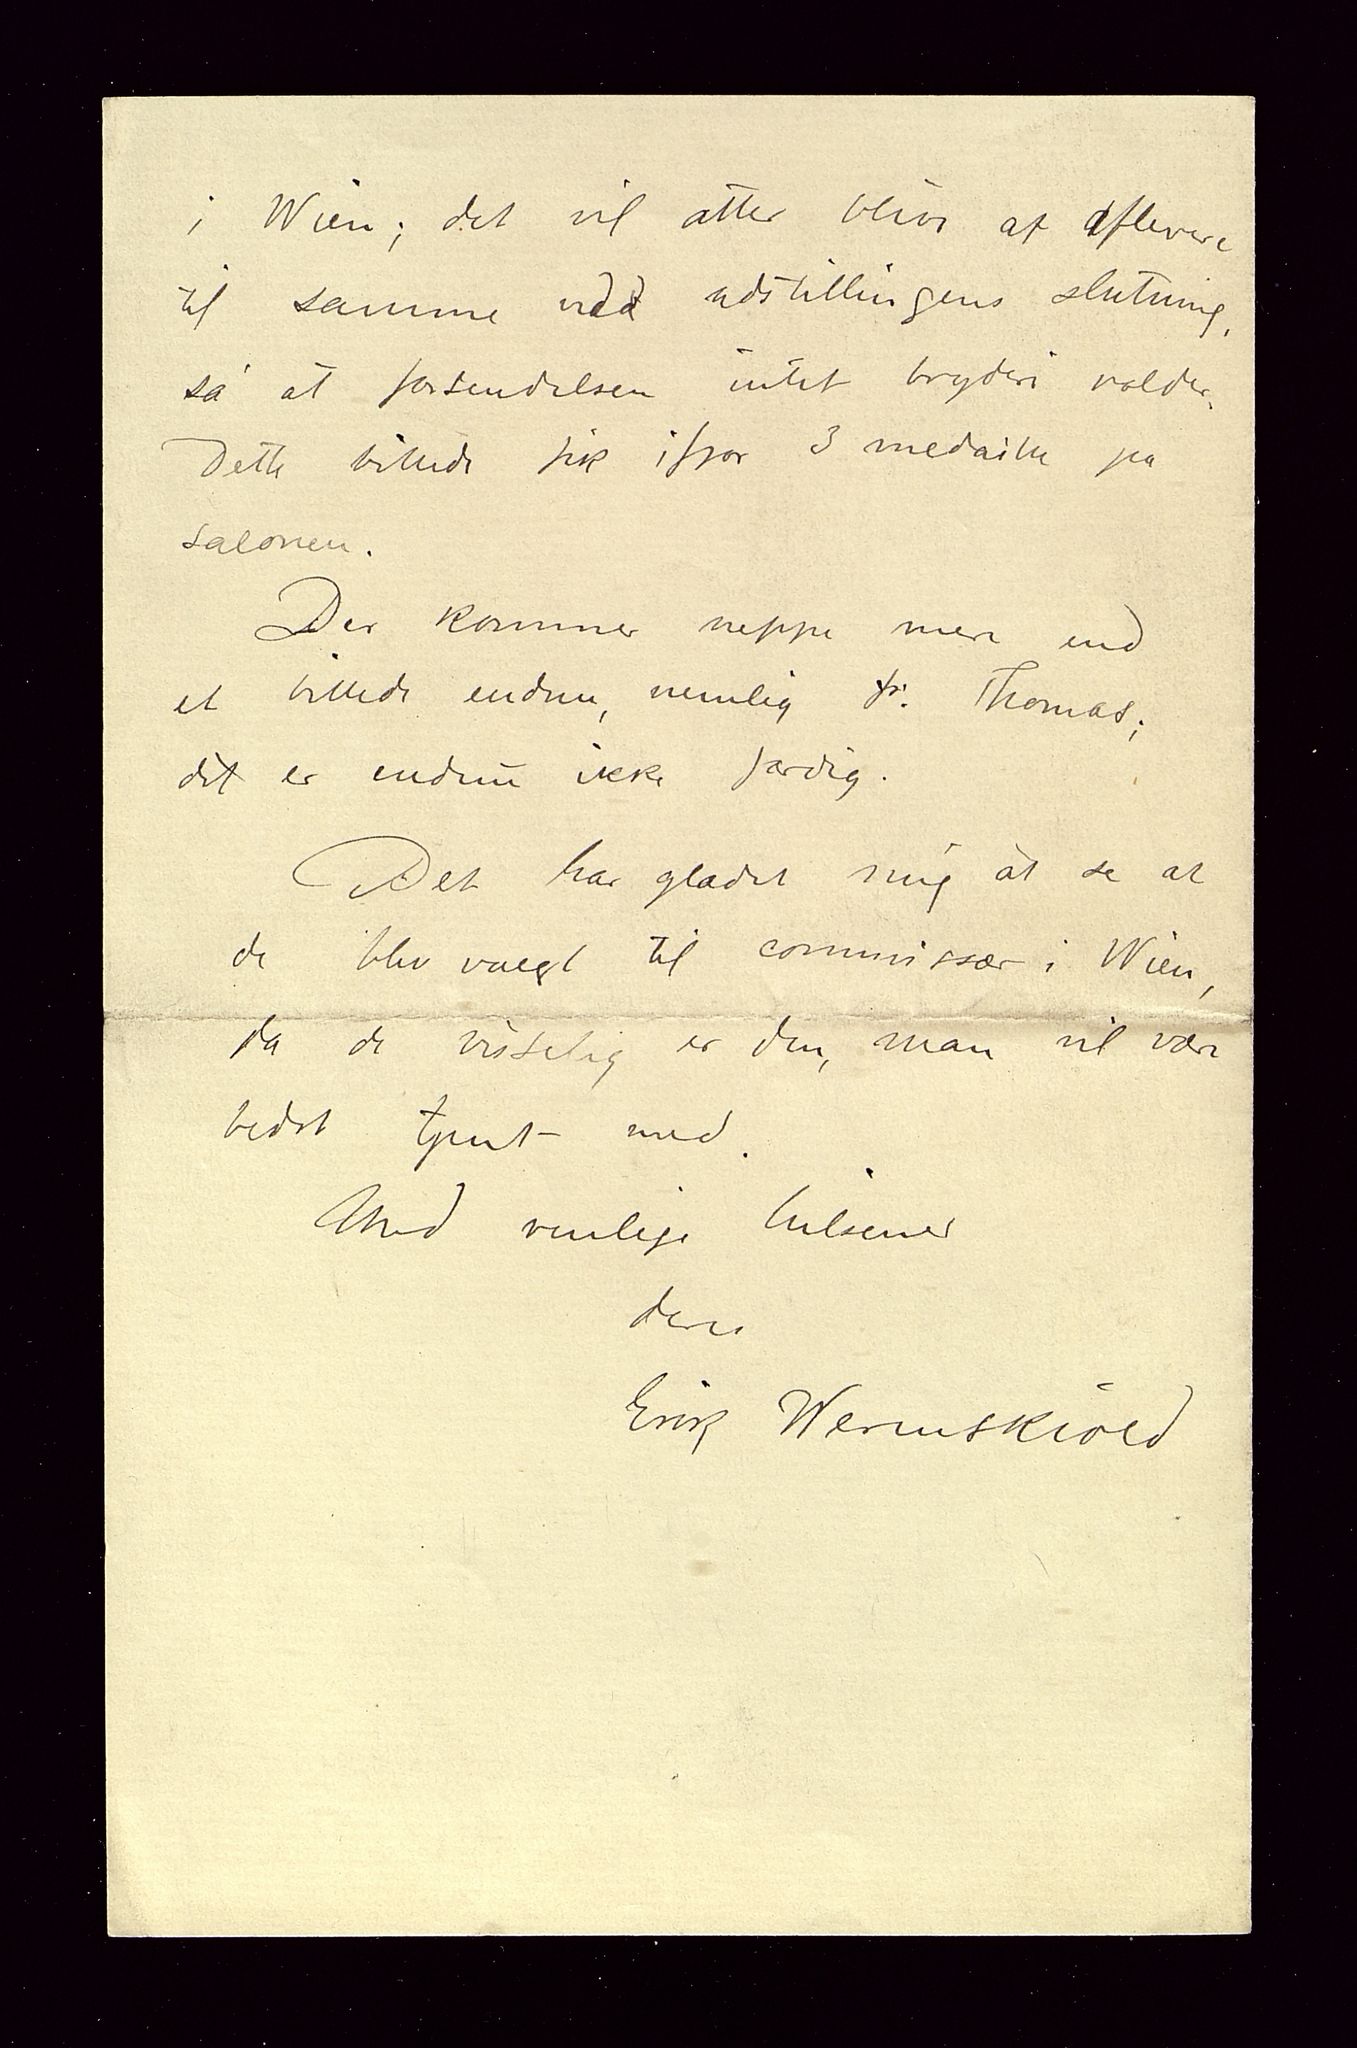 i Wien; det vil atter blive at aflevere
til samme ved udstillingens slutning,
så at forsendelsen intet bryderi volder.
Dette billede fik ifjor 3 medaille på
salonen.
Der kommer neppe mere end
et billede endnu, nemlig fr. Thomas;
det er endnu ikke færdig.
Det har glædet mig at se at
de blev valgt til commissær i Wien,
da de visselig er den, man vil være
bedst tjent med.
Med venlige hilsener
deres
Erik Werenskiold